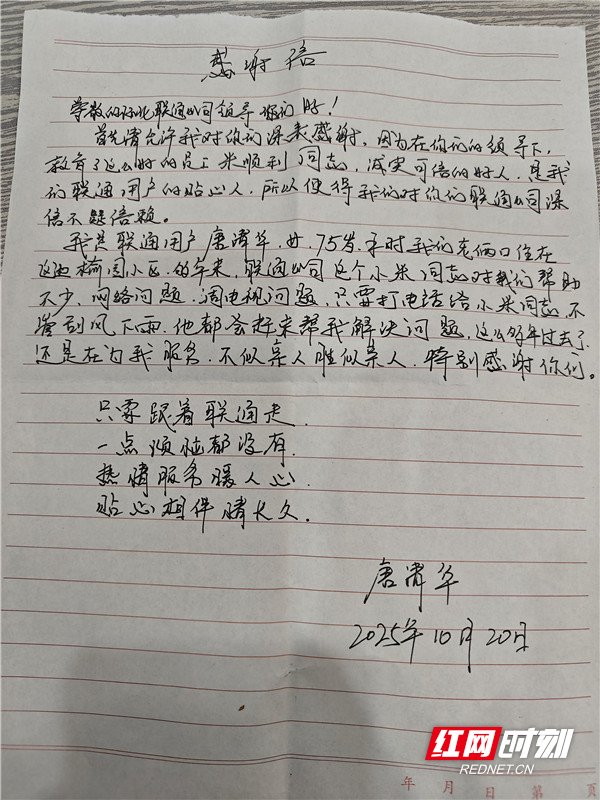 感谢信
尊敬的怀化联通公司领导 您们好！
首先请允许我对你们深表感谢，因为在你们的领导下，
教育了这么好的员工米顺利同志，诚实可信的好人，是我
们联通用户的贴心人，所以使得我们对你们联通公司深
信不疑信赖。
我是联通用户唐清华，女，75岁，平时我们老俩口住在
这边榆园小区，的年来，联通公司这个小米同志对我们帮助
不少，网络问题，调电视问题，只要打电话给小米同志，不
管刮风下雨，他都会赶来帮我解决问题，这么多年过去了
还是在为我服务，不似亲人胜似亲人，特别感谢你们。
只要跟着联通走，
一点烦恼都没有，
热情服务暖人心，
贴心相伴情长久。
唐清华
2025年10月20日
红网时刻
REDNET.CN
年 月 日 第 页